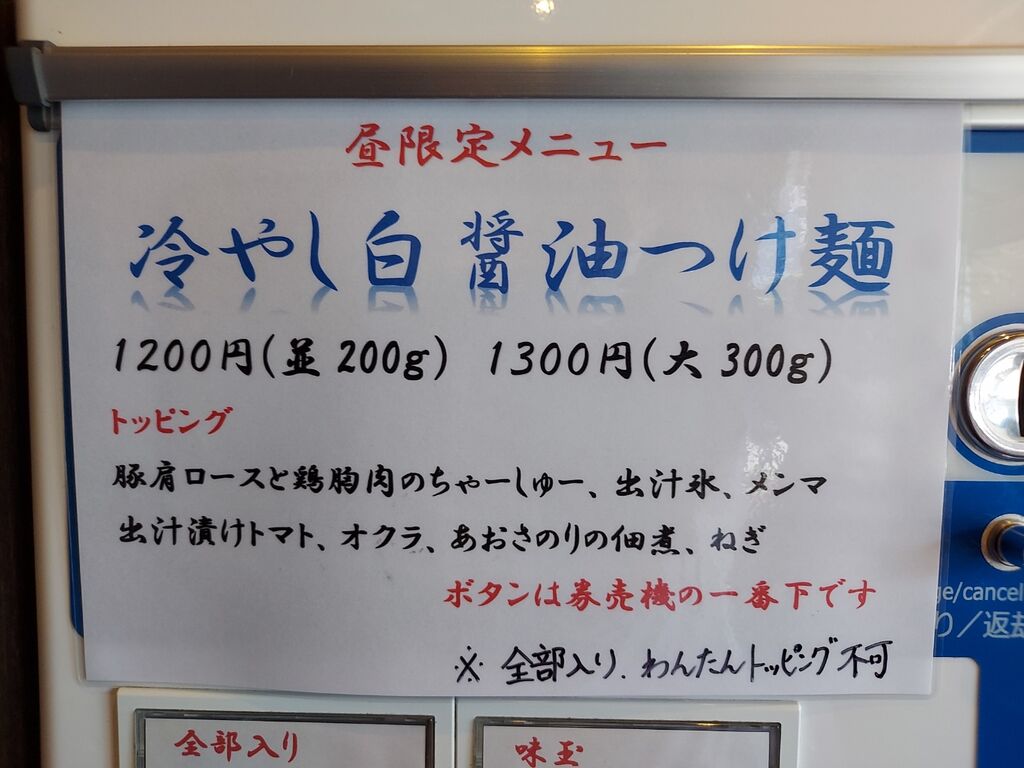 昼限定メニュー
冷やし白醤油つけ麺
1200円(並 200g) 1300円(大 300g)
トッピング
豚肩ロースと鶏胸肉のちゃーしゅー、出汁氷、メンマ
出汁漬けトマト、オクラ、あおさのりの佃煮、ねぎ
ボタンは券売機の一番下です
※ 全部入り、わんたんトッピング不可
ge/cancel
り／返却
全部入り
味玉